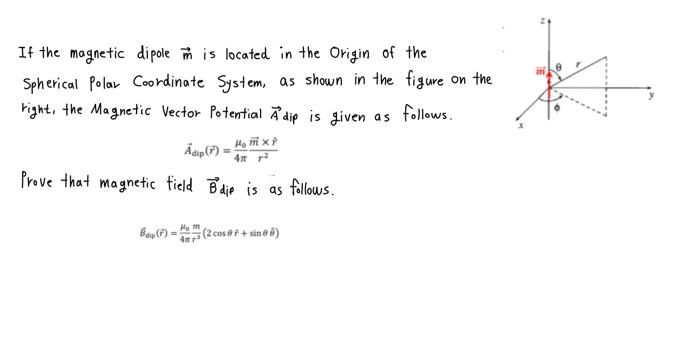 If the magnetic dipole m⃗ is located in the Origin of the
Spherical Polar Coordinate System, as shown in the figure on the
right, the Magnetic Vector Potential A⃗dip is given as follows.
A⃗dip(r⃗) = μ₀/4π m⃗ × r̂/r²
Prove that magnetic field B⃗dip is as follows.
B⃗dip(r⃗) = μ₀/4π m/r³ (2 cos θ r̂ + sin θ θ̂)
z
m⃗
θ
r
y
ϕ
x